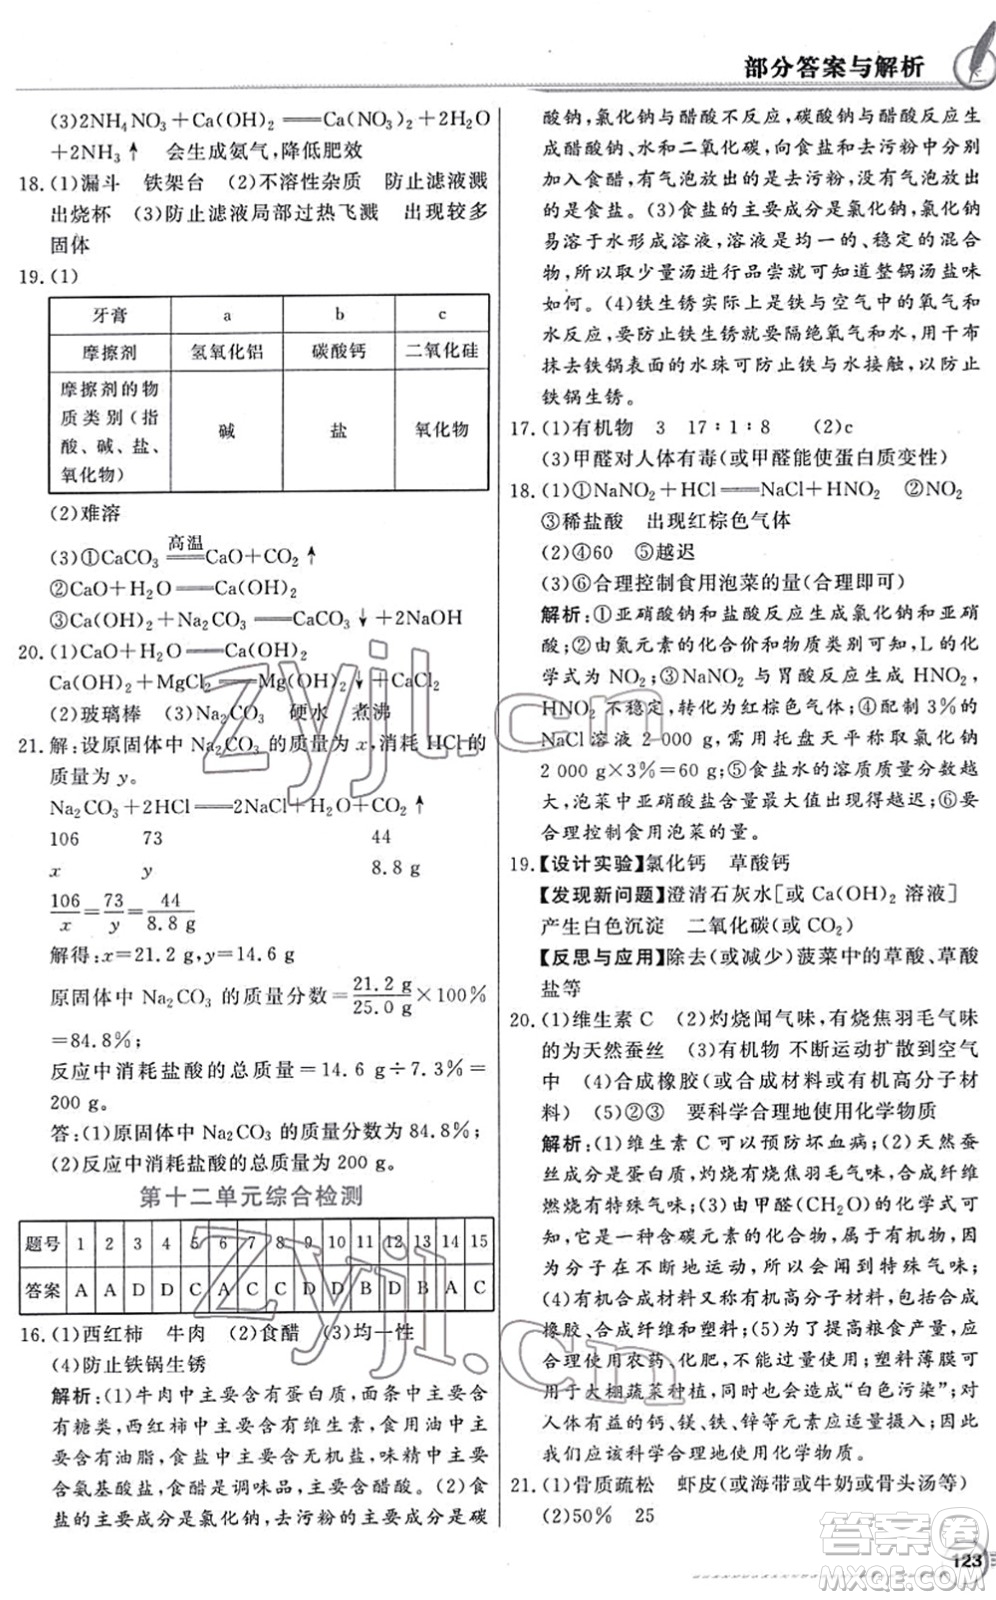 部分答案与解析
(3)2NH₄NO₃+Ca(OH)₂══Ca(NO₃)₂+2H₂O
+2NH₃↑ 会生成氨气,降低肥效
18.(1)漏斗 铁架台 (2)不溶性杂质 防止滤液溅
出烧杯 (3)防止滤液局部过热飞溅 出现较多
固体
19.(1)
牙膏 a b c
摩擦剂 氢氧化铝 碳酸钙 二氧化硅
摩擦剂的物
质类别(指
酸、碱、盐、
氧化物) 碱 盐 氧化物
(2)难溶
(3)①CaCO₃ ══高温══ CaO+CO₂↑
②CaO+H₂O══Ca(OH)₂
③Ca(OH)₂+Na₂CO₃══CaCO₃↓+2NaOH
20.(1)CaO+H₂O══Ca(OH)₂
Ca(OH)₂+MgCl₂══Mg(OH)₂↓+CaCl₂
(2)玻璃棒 (3)Na₂CO₃ 硬水 煮沸
21.解:设原固体中 Na₂CO₃ 的质量为 x,消耗 HCl 的
质量为 y。
Na₂CO₃+2HCl══2NaCl+H₂O+CO₂↑
106 73 44
x y 8.8 g
106/x=73/y=44/8.8 g
解得:x=21.2 g,y=14.6 g
原固体中 Na₂CO₃ 的质量分数=21.2 g/25.0 g×100%
=84.8%;
反应中消耗盐酸的总质量=14.6 g÷7.3%=
200 g。
答:(1)原固体中 Na₂CO₃ 的质量分数为 84.8%;
(2)反应中消耗盐酸的总质量为 200 g。
第十二单元综合检测
题号 1 2 3 4 5 6 7 8 9 10 11 12 13 14 15
答案 A A D D C A C C D D B D B A C
16.(1)西红柿 牛肉 (2)食醋 (3)均一性
(4)防止铁锅生锈
解析:(1)牛肉中主要含有蛋白质,面条中主要含
有糖类,西红柿中主要含有维生素,食用油中主要
含有油脂,食盐中主要含有无机盐,味精中主要
含氨基酸盐,食醋是调味品,主要含醋酸;(2)食
盐的主要成分是氯化钠,去污粉的主要成分是碳
酸钠,氯化钠与醋酸不反应,碳酸钠与醋酸反应生
成醋酸钠、水和二氧化碳,向食盐和去污粉中分别
加入食醋,有气泡放出的是去污粉,没有气泡放出
的是食盐。(3)食盐的主要成分是氯化钠,氯化钠
易溶于水形成溶液,溶液是均一的、稳定的混合
物,所以取少量汤进行品尝就可知道整锅汤盐味
如何。(4)铁生锈实际上是铁与空气中的氧气和
水反应,要防止铁生锈就要隔绝氧气和水,用干布
抹去铁锅表面的水珠可防止铁与水接触,以防止
铁锅生锈。
17.(1)有机物 3 17∶1∶8 (2)c
(3)甲醛对人体有毒(或甲醛能使蛋白质变性)
18.(1)①NaNO₂+HCl══NaCl+HNO₂ ②NO₂
③稀盐酸 出现红棕色气体
(2)④60 ⑤越迟
(3)⑥合理控制食用泡菜的量(合理即可)
解析:①亚硝酸钠和盐酸反应生成氯化钠和亚硝
酸;②由氮元素的化合价和物质类别可知,L 的化
学式为 NO₂;③NaNO₂ 与胃酸反应生成 HNO₂,
HNO₂ 不稳定,转化为红棕色气体;④配制 3%的
NaCl 溶液 2 000 g,需用托盘天平称取氯化钠
2 000 g×3%=60 g;⑤食盐水的溶质质量分数越
大,泡菜中亚硝酸盐含量最大值出现得越迟;⑥要
合理控制食用泡菜的量。
19.【设计实验】氯化钙 草酸钙
【发现新问题】澄清石灰水[或 Ca(OH)₂ 溶液]
产生白色沉淀 二氧化碳(或 CO₂)
【反思与应用】除去(或减少)菠菜中的草酸、草酸
盐等
20.(1)维生素 C (2)灼烧闻气味,有烧焦羽毛气味
的为天然蚕丝 (3)有机物 不断运动扩散到空气
中 (4)合成橡胶(或合成材料或有机高分子材
料) (5)②③ 要科学合理地使用化学物质
解析:(1)维生素 C 可以预防坏血病;(2)天然蚕
丝成分是蛋白质,灼烧有烧焦羽毛气味,合成纤维
燃烧无此气味;(3)由甲醛(CH₂O)的化学式可
知,它是一种含碳元素的化合物,属于有机物,分
子在不断地运动,因此刚开始会有难闻的气味;
(4)有机合成材料又称有机高分子材料,包括合成
橡胶、合成纤维和塑料;(5)为提高粮食产量,应
合理使用农药、化肥,不能一律禁用;塑料薄膜可
用于大棚蔬菜种植,同时也会造成“白色污染”;对
人体有益的钙、镁、铁、锌等元素应适量摄入,因此
我们应该科学合理地使用化学物质。
21.(1)骨质疏松 虾皮(或海带或牛奶或骨头汤等)
(2)50% 25
123
zyjl.cn
zyjl.cn
答案圈
MXQE.COM